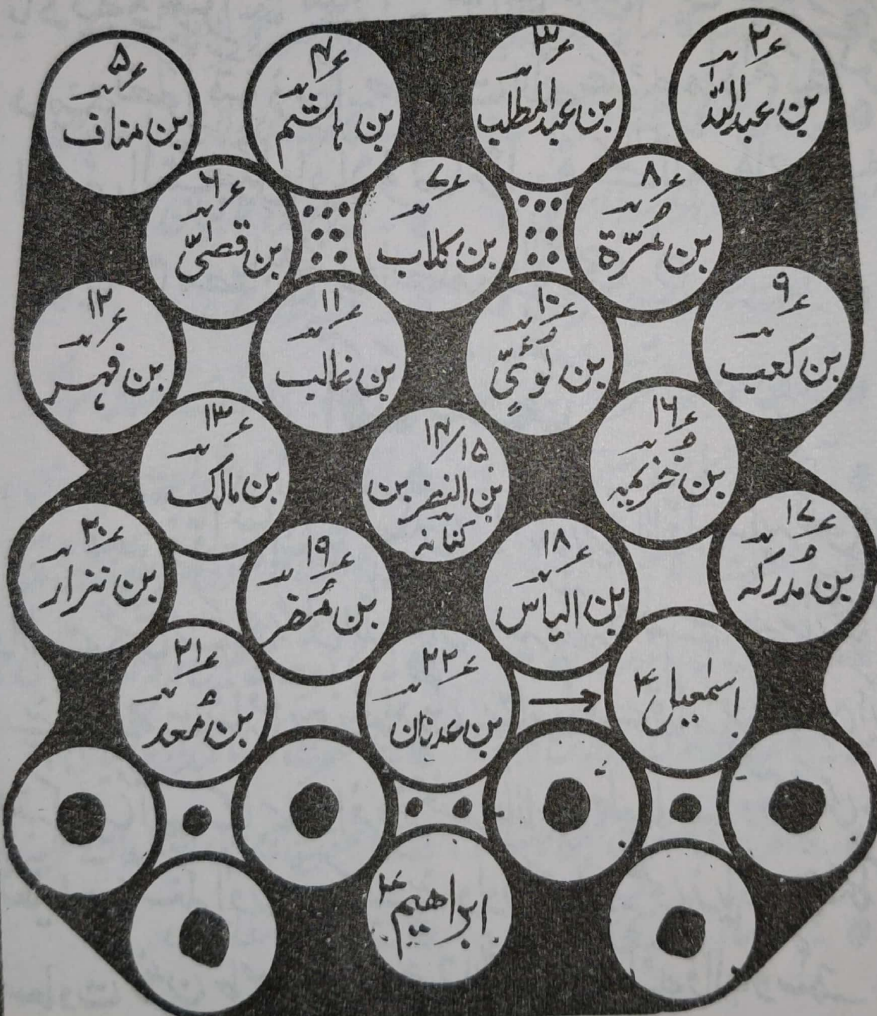 ۲
بن عبداللہ
۳
بن عبدالمطلب
۴
بن ہاشم
۵
بن مناف
۶
بن قصیّ
۷
بن کلاب
۸
بن مُرّة
۹
بن کعب
۱۰
بن لُویٔیّ
۱۱
بن غالب
۱۲
بن فہر
۱۳
بن مالک
۱۴/۱۵
بن النضر بن
کنانہ
۱۶
بن خُزیمہ
۱۷
بن مُدرکہ
۱۸
بن الیاس
۱۹
بن مُضر
۲۰
بن نزار
۲۱
بن معد
۲۲
بن عدنان
اسمٰعیل ؑ
ابراھیم ؑ